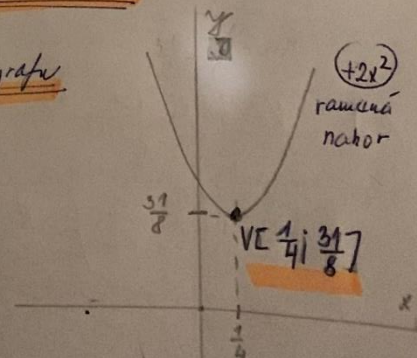 y
grafu
+2x²
ramená
nahor
31/8
V[1/4; 31/8]
x
1/4